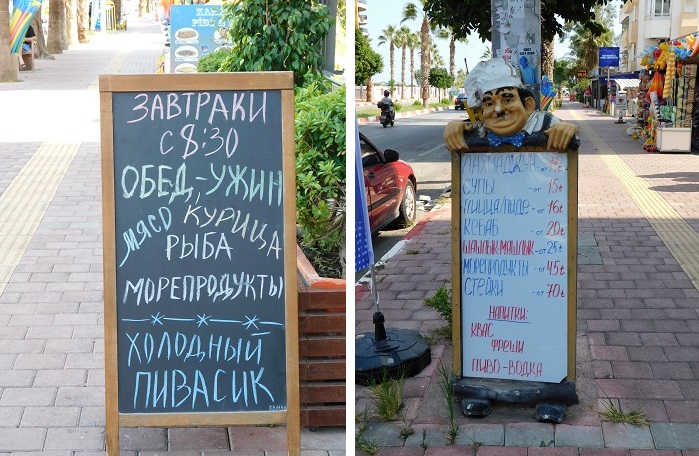 ЗАВТРАКИ
С 8:30
ОБЕД,-УЖИН
МЯСО КУРИЦА
РЫБА
МОРЕПРОДУКТЫ
ХОЛОДНЫЙ
ПИВАСИК
ЛАХМАДЖУН
СУПЫ -от 15₺
ПИЦЦА/ПИДЕ -от 16₺
КЕБАБ -от 20₺
ШАШЛЫК-МАШЛЫК -от 25₺
МОРЕПРОДУКТЫ -от 45₺
СТЕЙКИ -от 70₺
НАПИТКИ:
КВАС
ФРЕШИ
ПИВО-ВОДКА